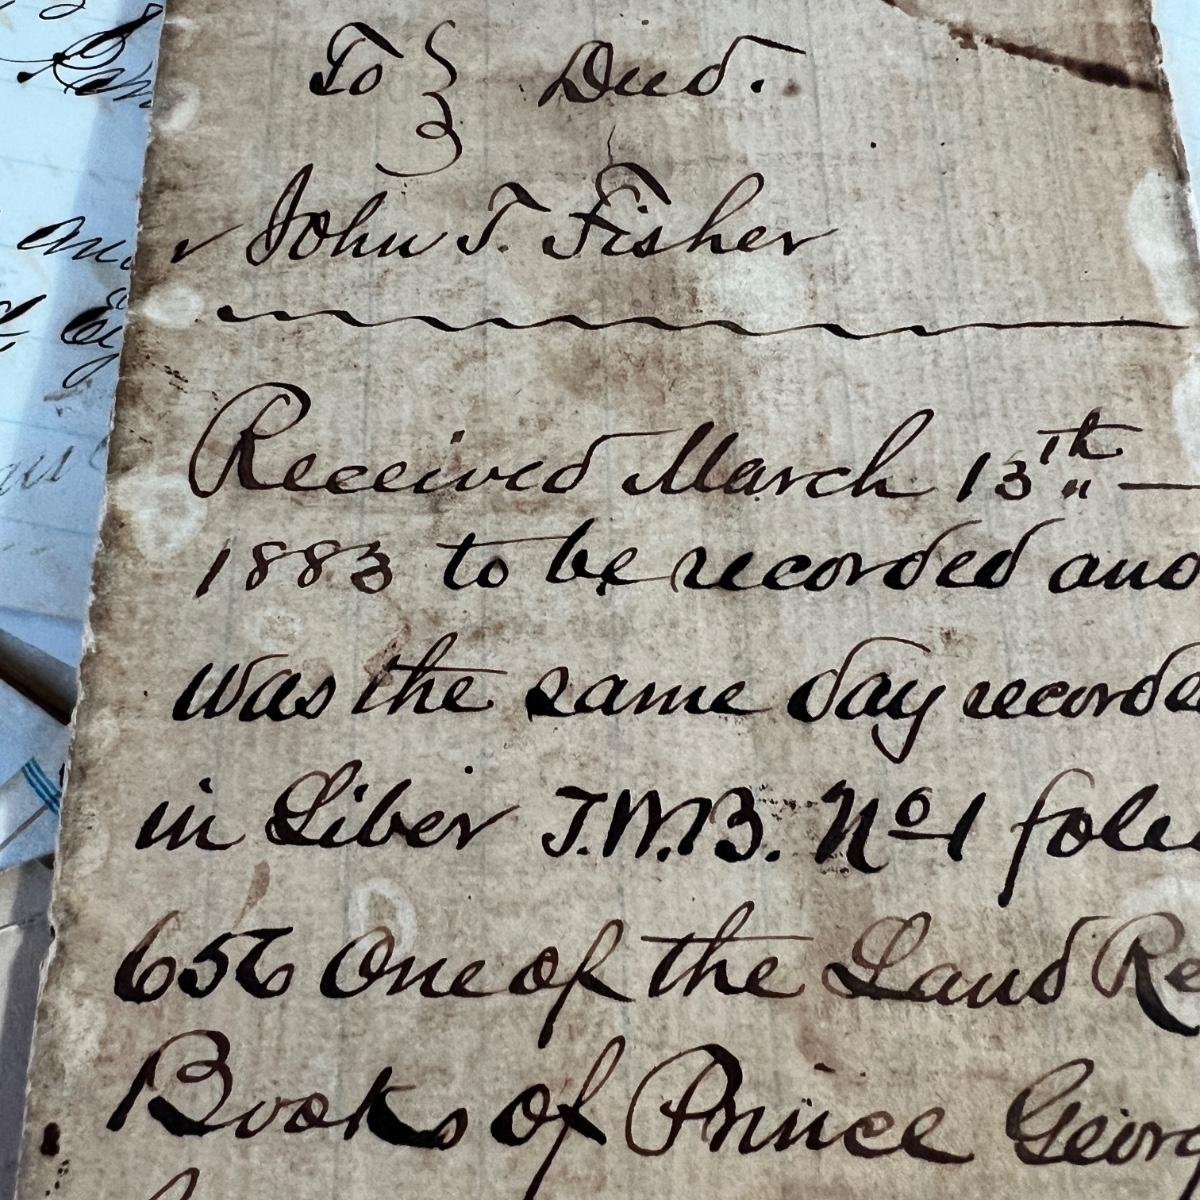 To } Deed.
John T. Fisher
Received March 13th —
1883 to be recorded and
was the same day recorde
in Liber J.W.B. No 1 folio
656 One of the Land Re
Books of Prince Georg